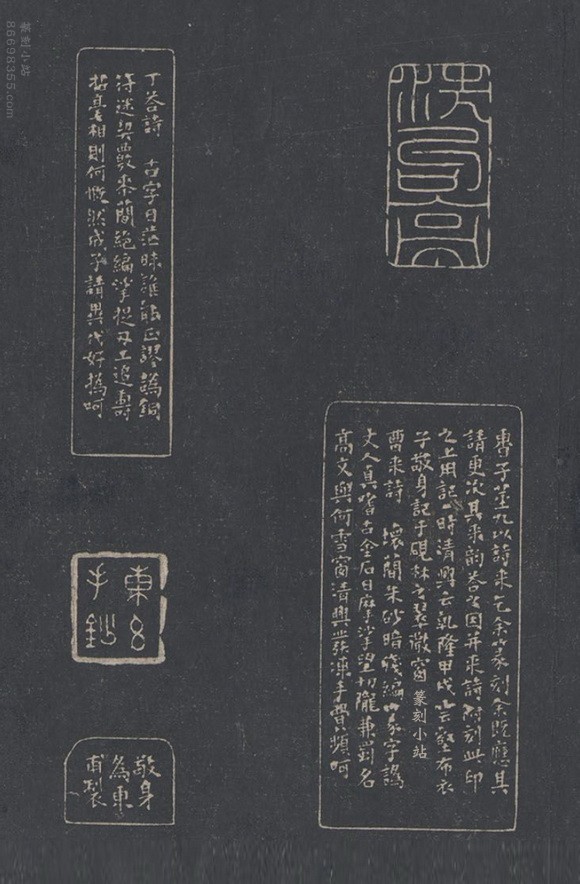 洗句亭
曹子荎九以詩來乞余篆刻余既應其
請更次其來韵荅之因并來詩附刻此印
之上用記一時清興云乾隆甲戌壑布衣
子敬身記于硯林之散窗
曹來詩 壞簡朱砂暗殘編字譌
丈人真嗜古金石日摩挲望切隴兼蜀名
高文與何雪窗清興發凍手曾頻呵
丁荅詩 古字日茫昧誰能正謬譌銅
符迷契數桼簡絕編挲捉刀工追壽
相則何慨然成子請異代好撝呵
東
手鈔
敬身
為東
甫製
篆刻小站
篆刻小站
86698355.com